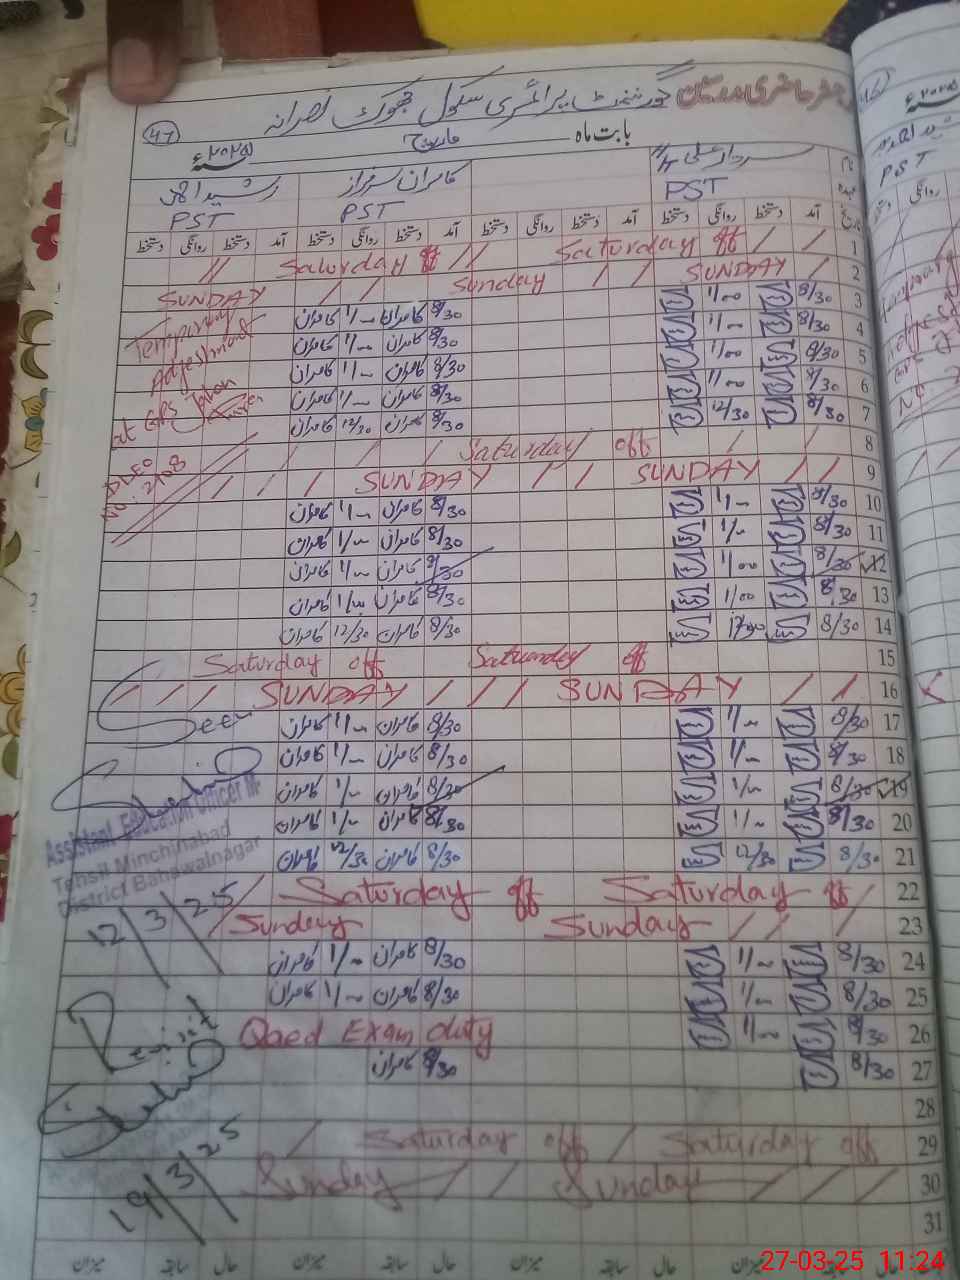 رجسٹر حاضری مدرسین گورنمنٹ پرائمری سکول جھوک نصرانہ
47 بابت ماہ مارچ ۲۰۲۵ء
سردار علی کامران سرفراز رشید احمد
PST PST PST
تاریخ آمد دستخط روانگی دستخط آمد دستخط روانگی دستخط آمد دستخط روانگی دستخط آمد دستخط روانگی دستخط
1 Saturday off Saturday off
2 SUNDAY Sunday SUNDAY
3 8/30 1/00 8/30 کامران 1/00 کامران Temporary
4 8/30 1/00 8/30 کامران 1/00 کامران Adjestment
5 8/30 1/00 8/30 کامران 1/00 کامران
6 8/30 1/00 8/30 کامران 1/00 کامران at GPS
7 8/30 12/30 8/30 کامران 12/30 کامران
8 Saturday off
DEO No. 2108
9 SUNDAY SUNDAY
10 8/30 1/00 8/30 کامران 1/00 کامران
11 8/30 1/00 8/30 کامران 1/00 کامران
12 8/30 1/00 8/30 کامران 1/00 کامران
13 8/30 1/00 8/30 کامران 1/00 کامران
14 8/30 12/30 8/30 کامران 12/30 کامران
15 Saturday off Saturday off
16 SUNDAY SUNDAY
17 8/30 1/00 8/30 کامران 1/00 کامران Seen
18 8/30 1/00 8/30 کامران 1/00 کامران
19 8/30 1/00 8/30 کامران 1/00 کامران
20 8/30 1/00 8/30 کامران 1/00 کامران
21 8/30 12/30 8/30 کامران 12/30 کامران
Assistant Education Officer
Tehsil Minchinabad
District Bahawalnagar
12/3/25
22 Saturday off Saturday off
23 Sunday Sunday
24 8/30 1/00 8/30 کامران 1/00 کامران
25 8/30 1/00 8/30 کامران 1/00 کامران
26 8/30 1/00 Qaed Exam duty
27 8/30 8/30 کامران
28
29 Saturday off Saturday off
30 Sunday Sunday
31
19/3/25
میزان سابقہ حال میزان سابقہ حال میزان سابقہ حال
27-03-25 11:24